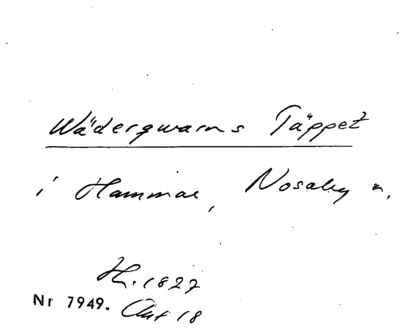 Wäderqwarns Täppet
i Hammar, Nosaby
H. 1827
Nr 7949. Akt 18